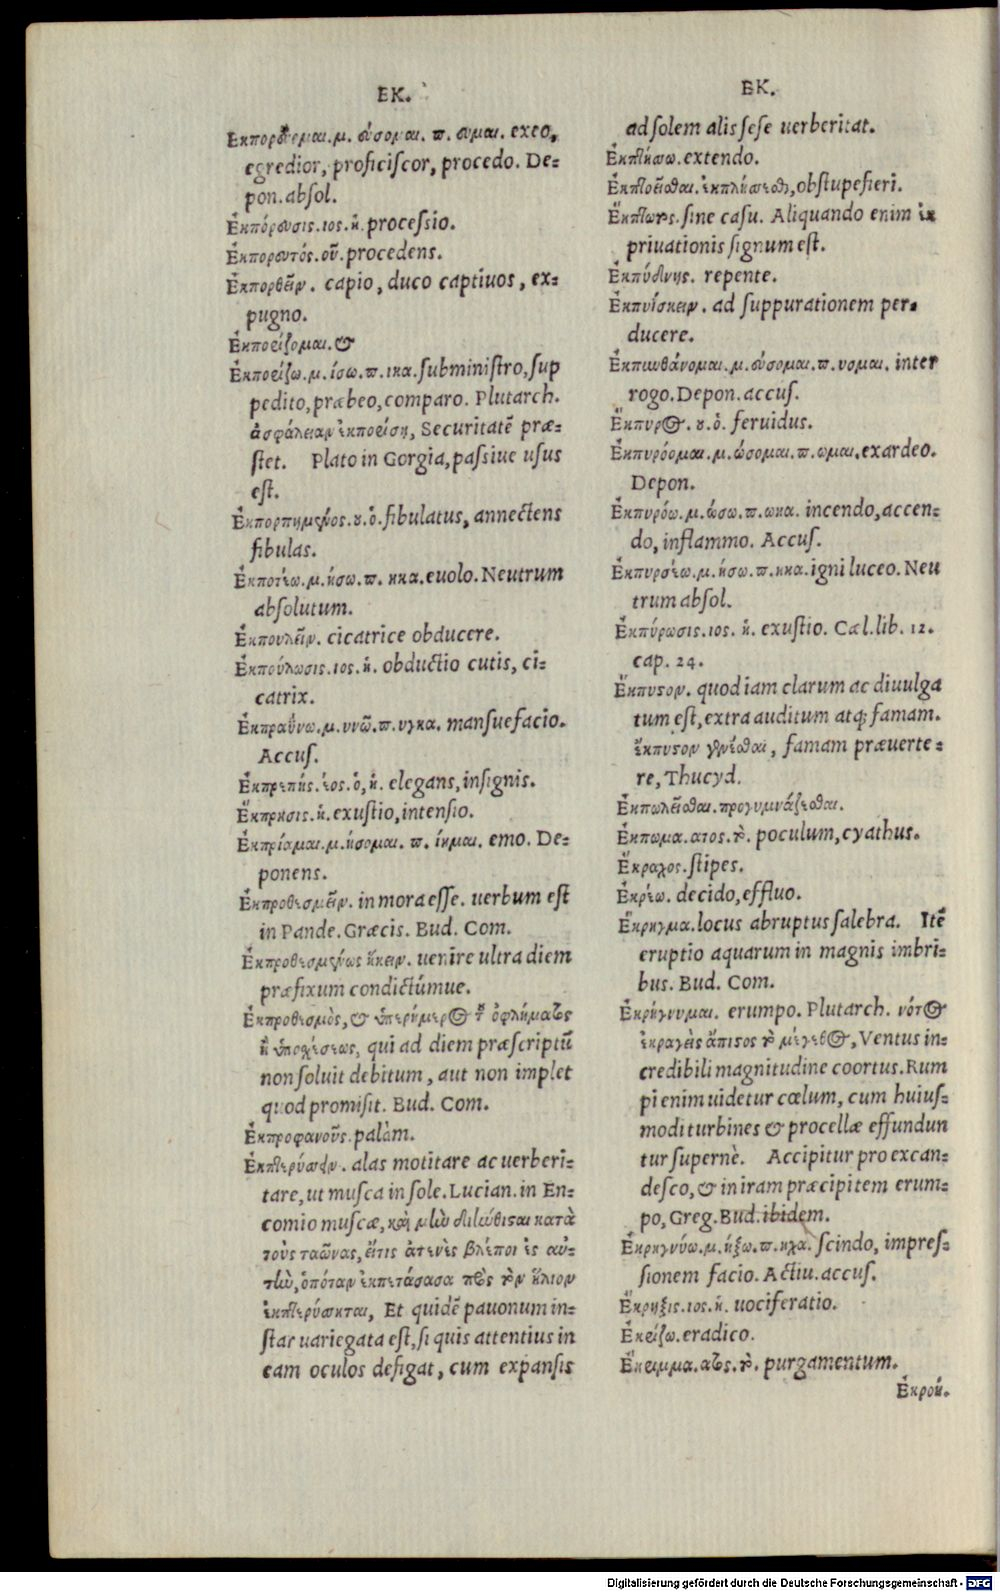 EK.
Ἐκπορεύομαι.μ. εύσομαι. π. ευμαι. exeo,
egredior, proficiſcor, procedo. De=
pon. abſol.
Ἐκπόρευσις.ιος.ἡ. proceſsio.
Ἐκπορευτός.οῦ. procedens.
Ἐκπορθεῖν. capio, duco captiuos, ex=
pugno.
Ἐκπορίζομαι. &
Ἐκπορίζω.μ.ίσω.π.ικα. ſubminiſtro, ſup
pedito, præbeo, comparo. Plutarch.
ἀσφάλειαν ἐκπορίση, Securitatē præ=
ſtet. Plato in Gorgia, paſsiue uſus
eſt.
Ἐκπορπημένος.ου.ὁ. fibulatus, annectens
fibulas.
Ἐκποτέω.μ.ήσω.π. ηκα. euolo. Neutrum
abſolutum.
Ἐκπουλεῖν. cicatrice obducere.
Ἐκπούλωσις.ιος.ἡ. obductio cutis, ci=
catrix.
Ἐκπραΰνω.μ.υνῶ.π.υγκα. manſuefacio.
Accuſ.
Ἐκπρεπής.έος.ὁ,ἡ. elegans, inſignis.
Ἔκπρησις.ἡ. exuſtio, intenſio.
Ἐκπρίαμαι.μ.ήσομαι. π. ίημαι. emo. De=
ponens.
Ἐκπροθεσμεῖν. in mora eſſe. uerbum eſt
in Pande. Græcis. Bud. Com.
Ἐκπροθεσμένως ἥκειν. uenire ultra diem
præfixum condictúmue.
Ἐκπροθεσμὸς, & ὑπερήμερος τῶν ὀφλήματος
ἢ ὑποσχέσεως, qui ad diem præſcriptū
non ſoluit debitum, aut non implet
quod promiſit. Bud. Com.
Ἐκπροφανοῦς. palàm.
Ἐκπτερύσσειν. alas motitare ac uerberi=
tare, ut muſca in ſole. Lucian. in En=
comio muſcæ, καὶ μὴν διηύθισαι κατὰ
τοὺς ταῶνας, εἴτις ἀτενὲς βλέποι ἐς αὐ=
τὴν, ὁπόταν ἐκπετάσασα πρὸς τὸν ἥλιον
ἐκπτερύσηται, Et quidē pauonum in=
ſtar uariegata eſt, ſi quis attentius in
eam oculos defigat, cum expanſis
EK.
ad ſolem alis ſeſe uerberitat.
Ἐκπτήσσω. extendo.
Ἐκπτοεῖσθαι. ἐκπλήσσεσθαι, obſtupefieri.
Ἔκπτωτος. ſine caſu. Aliquando enim ἐκ
priuationis ſignum eſt.
Ἐκπύδινης. repente.
Ἐκπυΐσκειν. ad ſuppurationem per=
ducere.
Ἐκπυνθάνομαι.μ.εύσομαι.π.υσμαι. inter
rogo. Depon. accuſ.
Ἔκπυρος. ου.ὁ. feruidus.
Ἐκπυρόομαι.μ.ώσομαι.π.ωμαι. exardeo.
Depon.
Ἐκπυρόω.μ.ώσω.π.ωκα. incendo, accen=
do, inflammo. Accuſ.
Ἐκπυρσέω.μ.ήσω.π.ηκα. igni luceo. Neu
trum abſol.
Ἐκπύρωσις.ιος. ἡ. exuſtio. Cæl. lib. 12.
cap. 24.
Ἔκπυστον. quod iam clarum ac diuulga
tum eſt, extra auditum atq; famam.
ἔκπυστον γενέσθαι, famam præuerte=
re, Thucyd.
Ἐκπωλεῖσθαι. προγυμνάζεσθαι.
Ἔκπωμα. ατος. τὸ. poculum, cyathus.
Ἔκραχος. ſtipes.
Ἐκρέω. decido, effluo.
Ἔκρηγμα. locus abruptus ſalebra. Itē
eruptio aquarum in magnis imbri=
bus. Bud. Com.
Ἐκρήγνυμαι. erumpo. Plutarch. νότος
ἐκραγεὶς ἄπιστος τὸ μέγεθος, Ventus in=
credibili magnitudine coortus. Rum
pi enim uidetur cœlum, cum huiuſ=
modi turbines & procellæ effundun
tur ſupernè. Accipitur pro excan=
deſco, & in iram præcipitem erum=
po, Greg. Bud. ibidem.
Ἐκρηγνύω.μ.ήξω.π.ηχα. ſcindo, impreſ=
ſionem facio. Actiu. accuſ.
Ἔκρηξις.ιος.ἡ. uociferatio.
Ἐκριζω. eradico.
Ἔκριμμα.ατος.τὸ. purgamentum.
Ἐκρού.
Digitalisierung gefördert durch die Deutsche Forschungsgemeinschaft - DFG